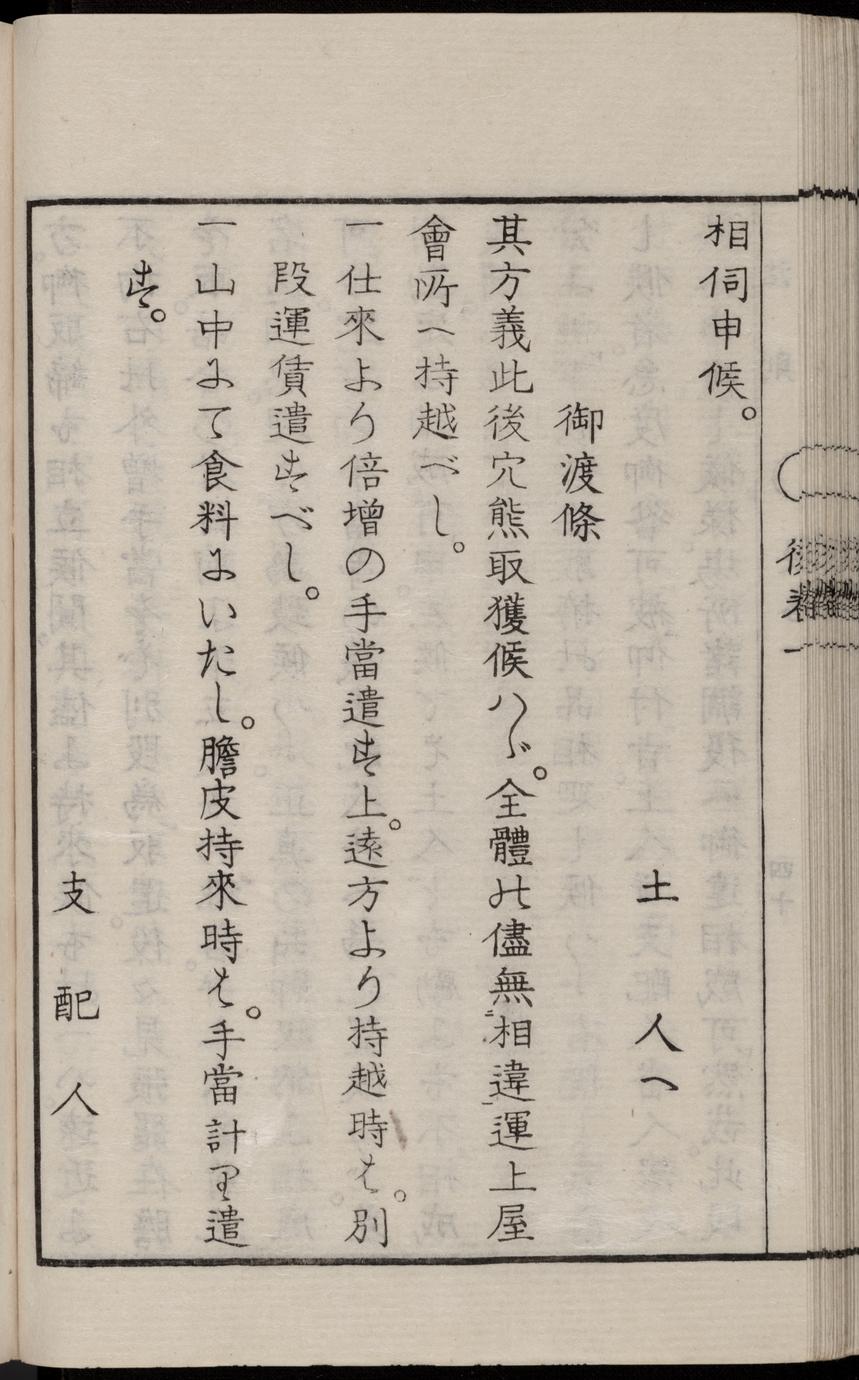 相伺申候。
土人へ
御渡條
其方義此後穴熊取獲候ハゞ。全體の儘無相違運上屋
會所へ持越べし。
一仕來より倍増の手當遣す上。遠方より持越時は。別
段運賃遣すべし。
一山中にて食料にいたし。膽皮持來時は。手當計り遣
す。
支配人
後巻一